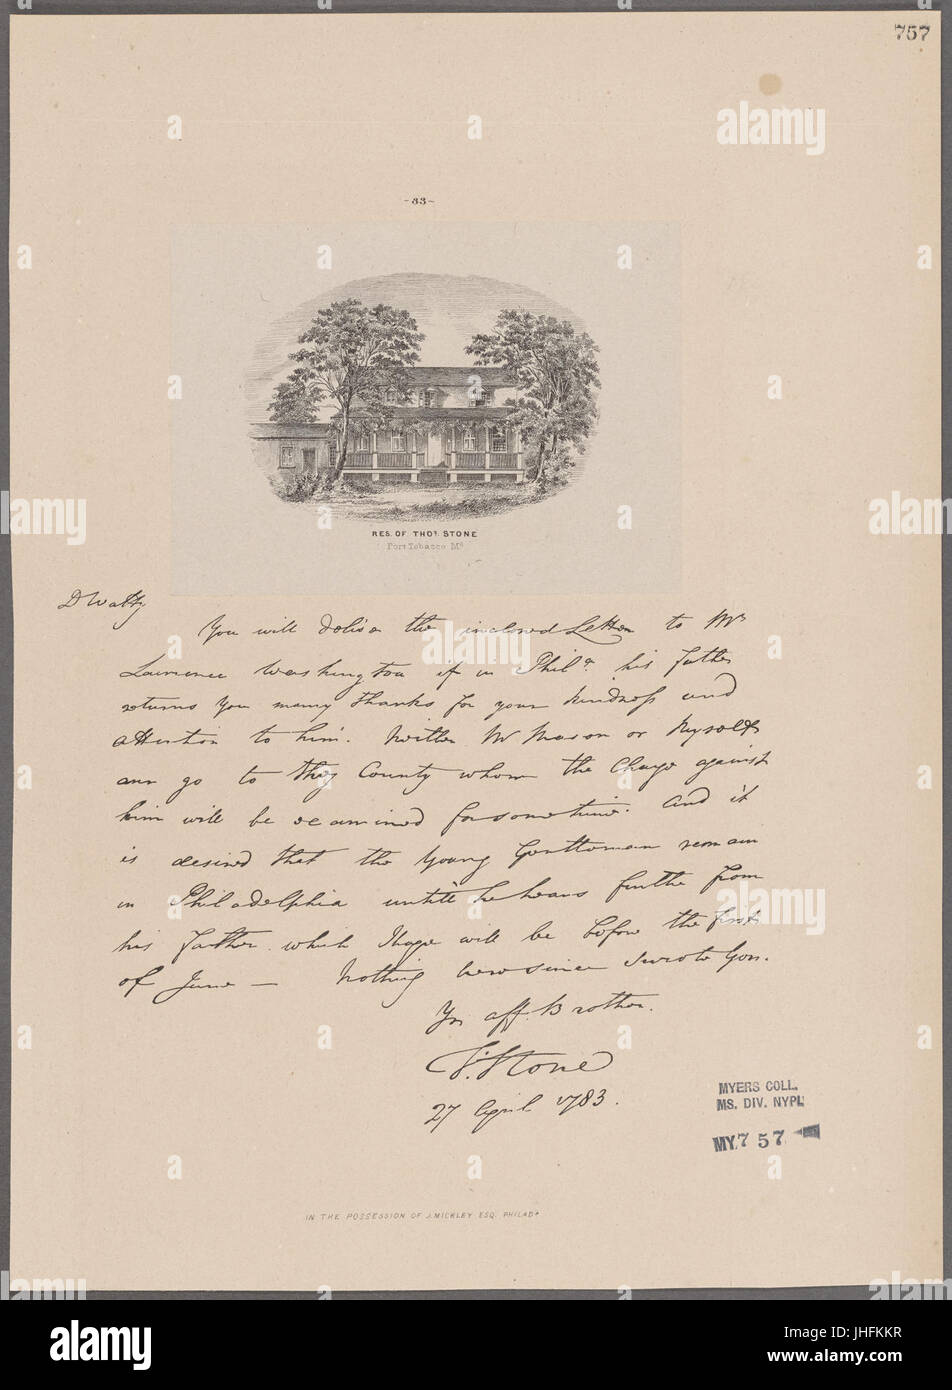 757
-33-
RES. OF THOS. STONE
Port Tobacco Md.
D Watty
You will deliver the inclosed Letter to Mr
Lawrence Washington if in Phila. his father
returns you many thanks for your kindness and
attention to him. Neither Mr Mason or
go to County whom the Charge against
him will be examined for sometime. And it
is desired that the Young Gentleman remain
in Philadelphia untill he hears further from
his father which I hope will be before the first
of June — Nothing new since I wrote You.
Yr aff. Brother.
T. Stone
27 April 1783.
MYERS COLL.
MS. DIV. NYPL
MY 757
IN THE POSSESSION OF J. MICKLEY ESQ. PHILADA
alamy stock photo
alamy
Image ID: JHFKKR
www.alamy.com